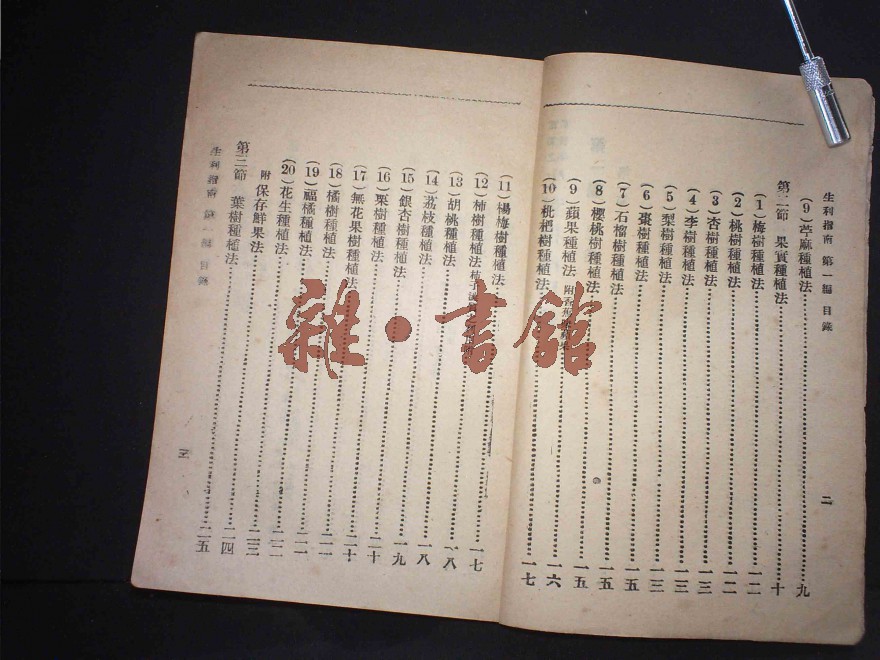 生利指南 第一編 目錄
二
(9)苧麻種植法……九
第二節 果實種植法……十
(1)梅樹種植法……一二
(2)桃樹種植法……一二
(3)杏樹種植法……一三
(4)李樹種植法……一三
(5)梨樹種植法……一三
(6)棗樹種植法……一五
(7)石榴樹種植法……一五
(8)櫻桃樹種植法……一五
(9)蘋果種植法 附……一五
(10)枇杷樹種植法……一六
(11)楊梅樹種植法……一七
(12)柿樹種植法 柿子……一七
(13)胡桃種植法……一八
(14)荔枝種植法……一八
(15)銀杏樹種植法……一九
(16)栗樹種植法……二十
(17)無花果樹種植法……二十
(18)橘樹種植法……二一
(19)福橘種植法……二一
(20)花生種植法……二二
附 保存鮮果法……二三
第三節 葉樹種植法……二四
二五
生利指南 第一編 目錄
三
雜·書館